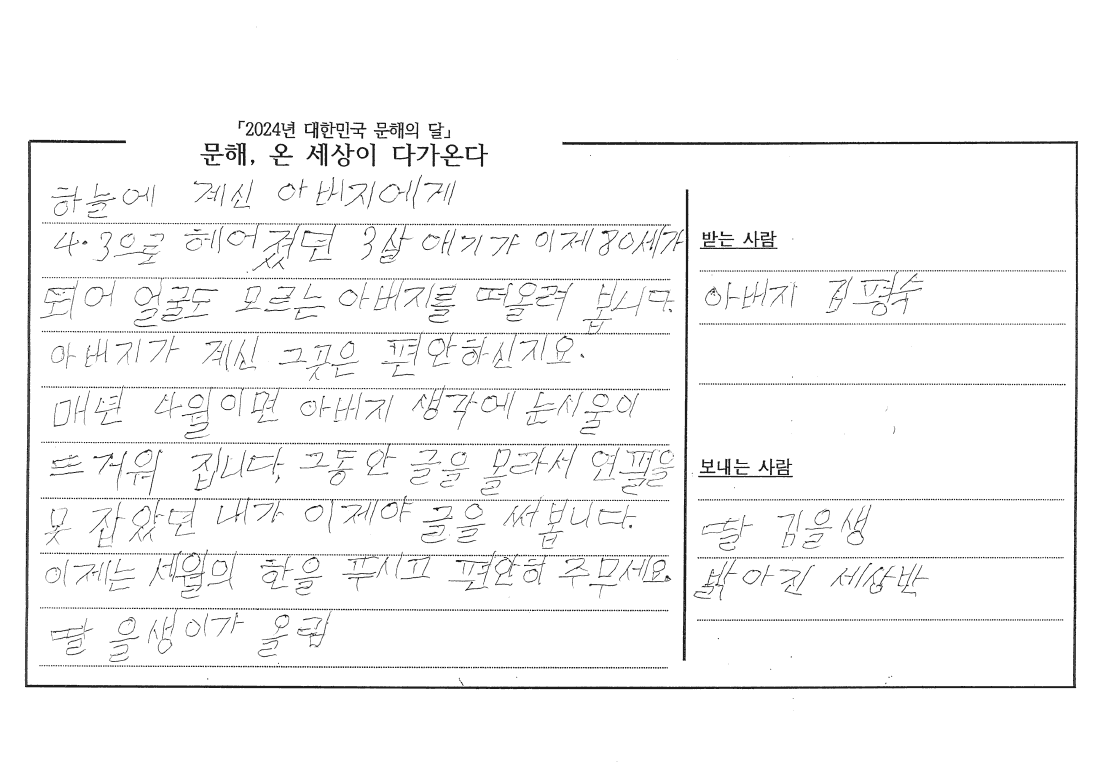 「2024년 대한민국 문해의 달」
문해, 온 세상이 다가온다
하늘에 계신 아버지에게
4·3으로 헤어졌던 3살 애기가 이제 80세가
되어 얼굴도 모르는 아버지를 떠올려 봅니다.
아버지가 계신 그곳은 편안하신지요.
매년 4월이면 아버지 생각에 눈시울이
뜨거워 집니다. 그동안 글을 몰라서 연필을
못 잡았던 내가 이제야 글을 써봅니다.
이제는 세월의 한을 푸시고 편안히 주무세요.
딸 을생이가 올림
받는 사람
아버지 김평숙
보내는 사람
딸 김을생
밝아진 세상반